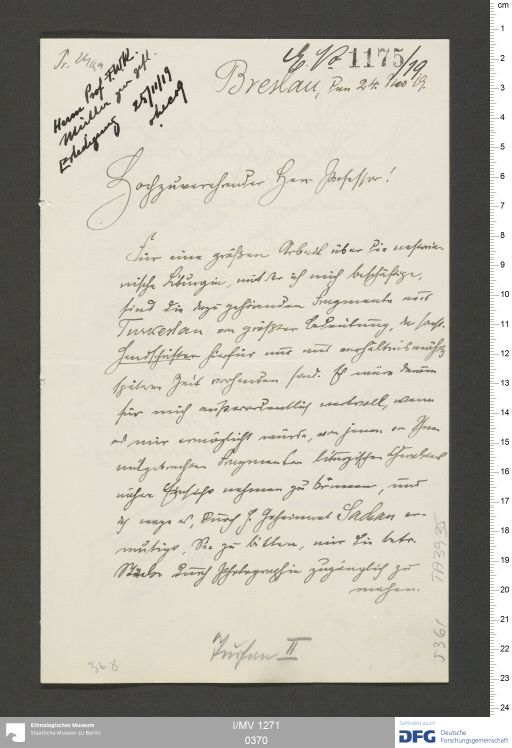 Pr. 24/11.19
E. No 1175/19
Herrn Prof. F.W.K.
Müller zur gefl.
Erledigung
25/11/19
Breslau, den 24. Nov 19.
Hochzuverehrender Herr Professor!
Für eine größere Arbeit über die nestoria-
nische Liturgie, mit der ich mich beschäftige,
sind die dazu gehörenden Fragmente aus
Turkestan von größter Bedeutung, da sonst
Handschriften hierfür nur aus verhältnismäßig
später Zeit vorhanden sind. Es wäre darum
für mich außerordentlich wertvoll, wenn
es mir ermöglicht würde, von jenen von Ihnen
mitgebrachten Fragmenten liturgischen Charakters
nähere Einsicht nehmen zu können, und
ich wage es, durch H. Geheimrat Sachau er-
mutigt, Sie zu bitten, mir die betr.
Stücke durch Photographie zugänglich zu
machen.
Turfan II
368
TA 3935
5361
cm
1
2
3
4
5
6
7
8
9
10
11
12
13
14
15
16
17
18
19
20
21
22
23
24
Ethnologisches Museum
Staatliche Museen zu Berlin
I/MV 1271
0370
Gefördert durch
DFG Deutsche
Forschungsgemeinschaft